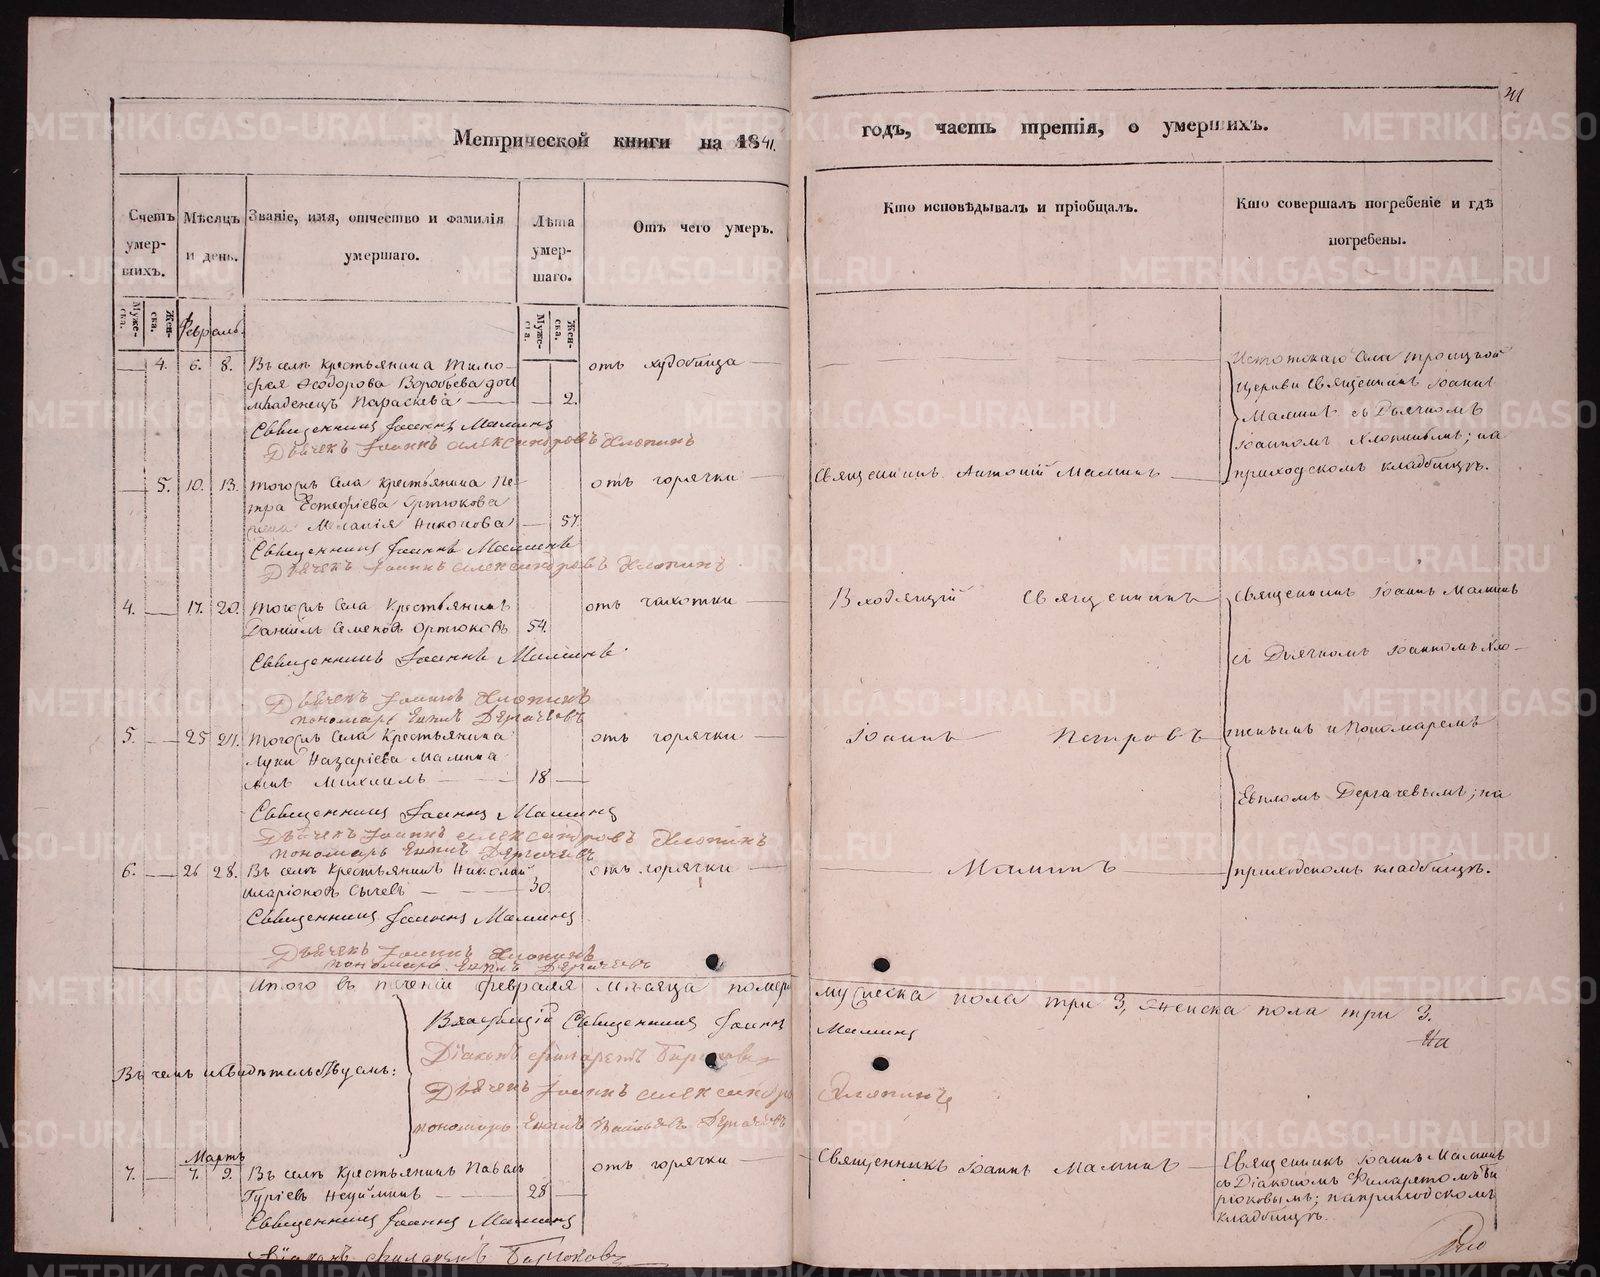 Метрической книги на 1841.
годъ, часть третія, о умершихъ.
Счетъ умершихъ.
Мѣсяцъ и день.
Званіе, имя, отчество и фамилія умершаго.
Лѣта умершаго.
Отъ чего умеръ.
Кто исповѣдывалъ и пріобщалъ.
Кто совершалъ погребеніе и гдѣ погребены.
Мужеска. Женска.
Мужеска. Женска.
Февраль
4. 6. 8. Въ селѣ крестьянина Тимо-
фея Ѳеодорова Воробьева дочь
младенецъ Параскева 2.
отъ
Священникъ Іоаннъ Маминъ
Дьячекъ Іоаннъ Александровъ Хлопинъ
Троицкой
церкви Священникъ Іоаннъ
Маминъ съ Дьячкомъ
Іоанномъ Хлопинымъ; на
приходскомъ кладбищѣ.
5. 10. 13. тогожъ села крестьянина Пе-
тра Ортюкова
жена Меланія Никонова 57.
отъ горячки
Священникъ Антоній Маминъ
Священникъ Іоаннъ Маминъ
Дьячекъ Іоаннъ Александровъ Хлопинъ
4. 17. 20. тогожъ села крестьянинъ
Даніилъ Семеновъ Ортюковъ 54.
отъ чахотки
Священникъ Іоаннъ Маминъ
Дьячекъ Іоаннъ Хлопинъ
пономарь Евпаъ Дергачевъ
Входящій Священникъ
Священникъ Іоаннъ Маминъ
съ Дьячкомъ Іоанномъ Хло-
5. 25 27. тогожъ села крестьянина
Луки Назаріева Мамина
сынъ Михаилъ 18
отъ горячки
Іоаннъ Петровъ
пинымъ и Пономаремъ
Евпломъ Дергачевымъ; на
Священникъ Іоаннъ Маминъ
Дьячекъ Іоаннъ Александровъ Хлопинъ
пономарь Евплъ Дергачевъ
6. 26 28. Въ селѣ крестьянинъ Николай
Иларіоновъ Сычевъ 30.
отъ горячки
Маминъ
приходскомъ кладбищѣ.
Священникъ Іоаннъ Маминъ
Дьячекъ Іоаннъ Хлопинъ
пономарь Евплъ Дергачевъ
Итого въ теченіи февраля мѣсяца померло мужеска пола три 3, женска пола три 3.
На
Въ чемъ и свидѣтельствуемъ:
Священникъ Іоаннъ Маминъ
Діаконъ Филаретъ Бирюковъ
Дьячекъ Іоаннъ Александровъ Хлопинъ
пономарь Евплъ Васильевъ Дергачевъ
Мартъ
7. 7. 9. Въ селѣ крестьянинъ Павелъ
Гуріевъ Неуйминъ 28
отъ горячки
Священникъ Іоаннъ Маминъ
Священникъ Іоаннъ Маминъ
съ Діакономъ Филаретомъ Би-
рюковымъ; на приходскомъ
кладбищѣ.
Священникъ Іоаннъ Маминъ
Діаконъ Филаретъ Бирюковъ
METRIKI.GASO-URAL.RU